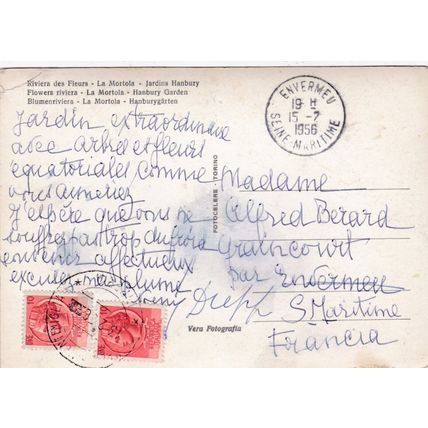 Riviera des Fleurs - La Mortola - Jardins Hanbury
Flowers riviera - La Mortola - Hanbury Garden
Blumenriviera - La Mortola - Hanburygärten
ENVERMEU
19 H
15 -7
1956
SEINE-MARITIME
Jardin extraordinaire
avec arbres et fleurs
équatoriales comme
vous aimeriez
J'espère que vous ne
souffrez pas trop du froid
envoner affectueux
excusez ma plume
FOTOCELERE - TORINO
Madame
Alfred Berard
Graincourt
par Envermeu
Dieppe
S. Maritime
Francia
Vera Fotografia